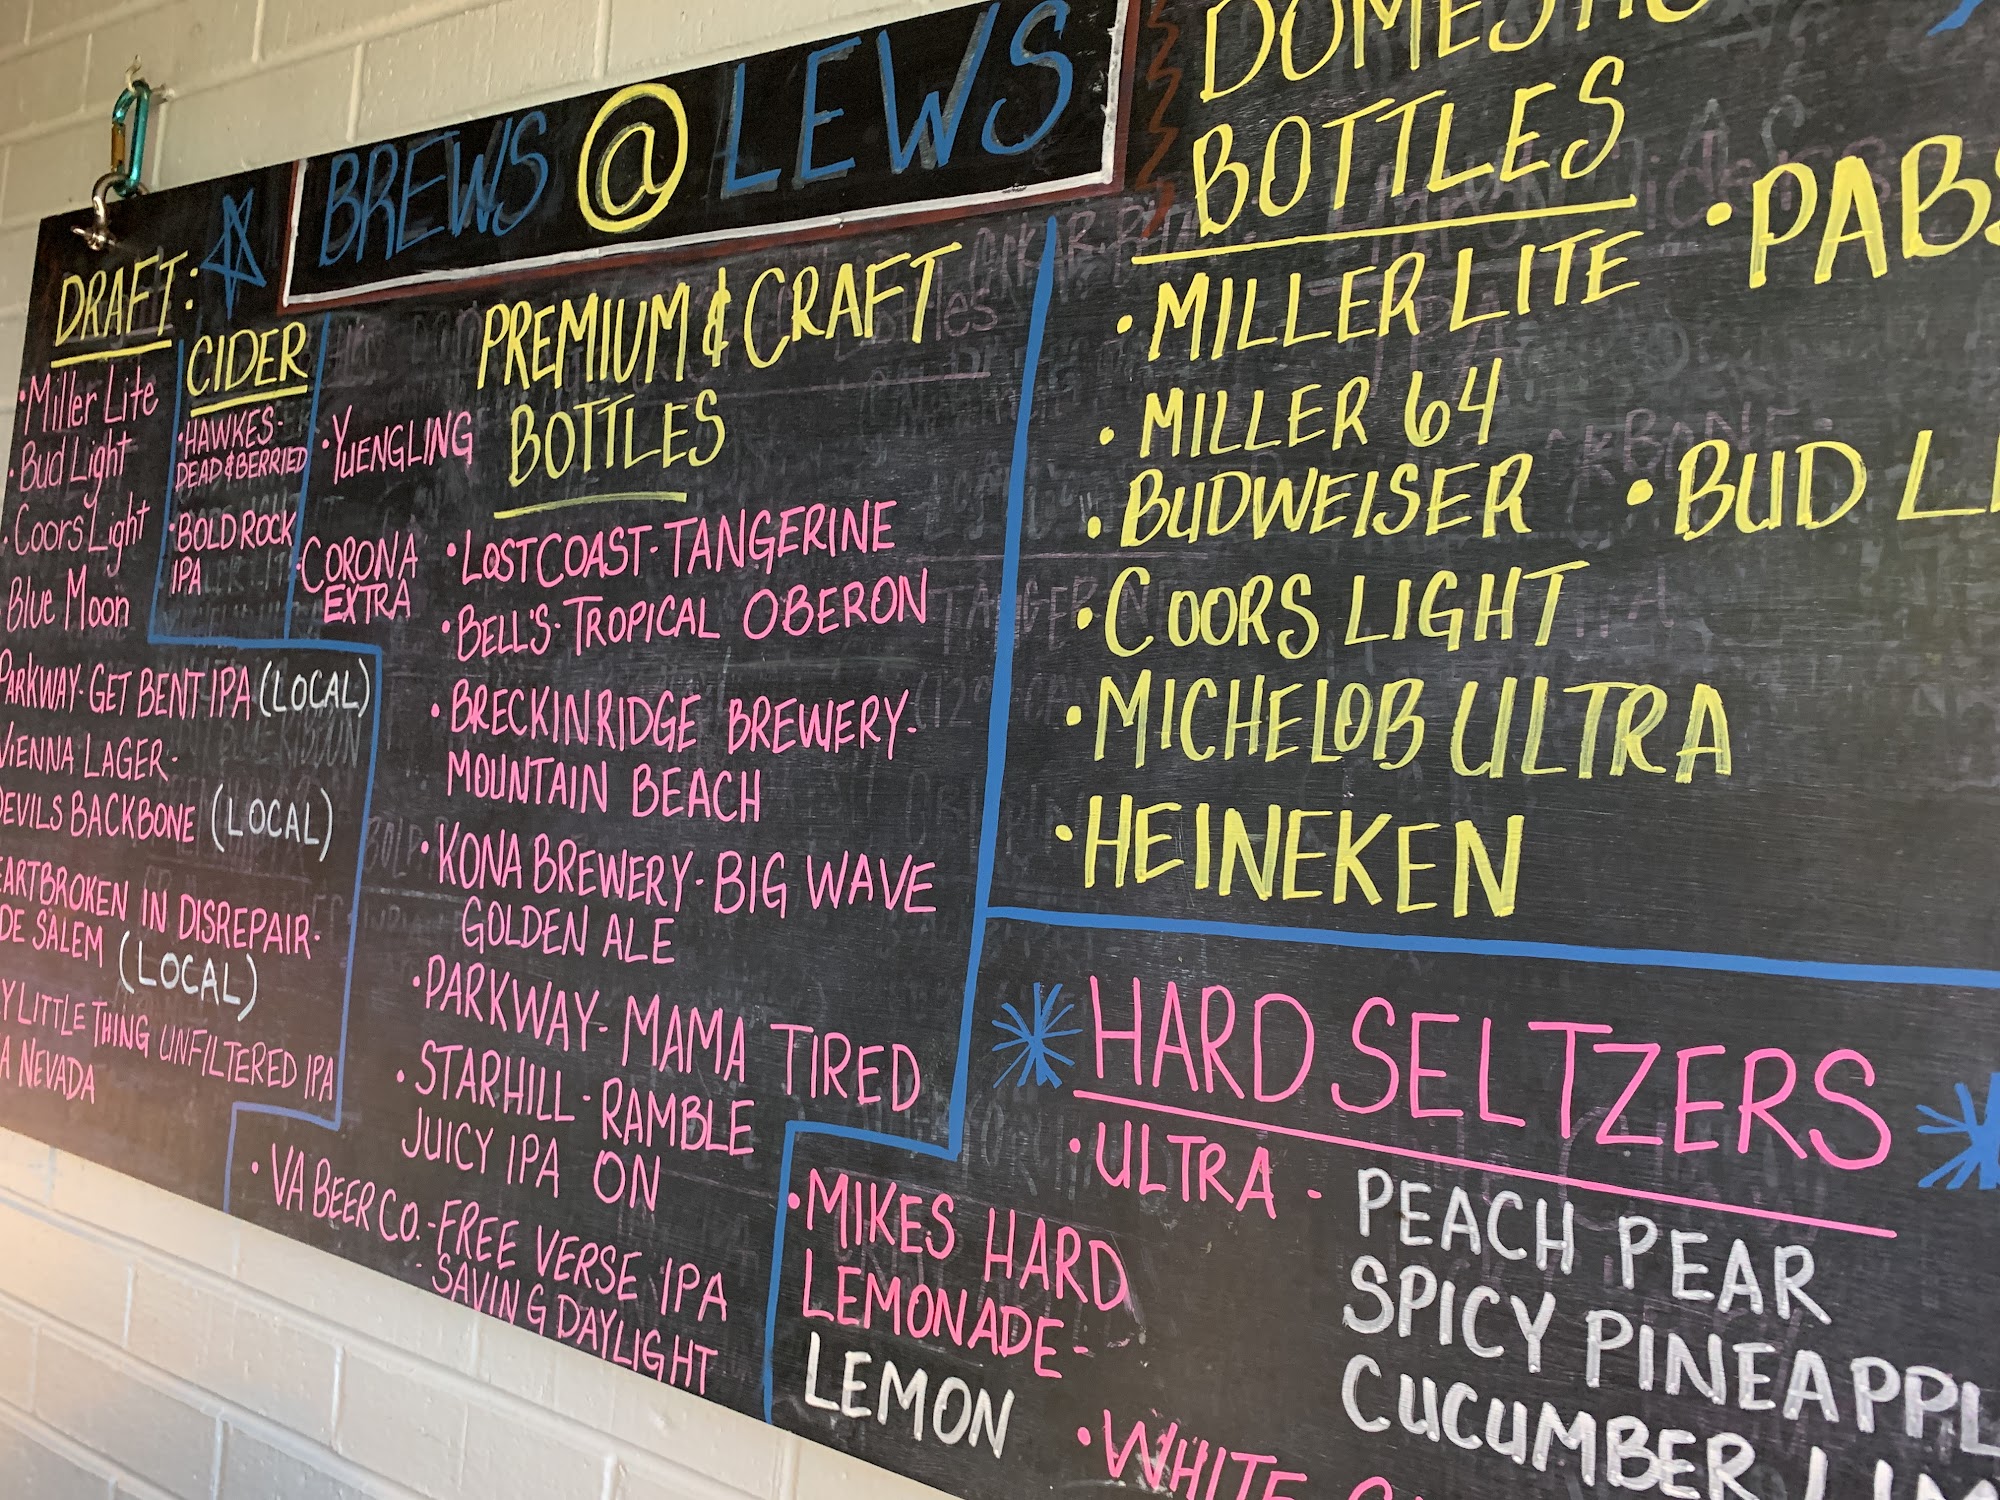 BREWS @ LEWS
DRAFT:
• Miller Lite
• Bud Light
• Coors Light
Blue Moon
PARKWAY - GET BENT IPA (LOCAL)
VIENNA LAGER -
DEVILS BACKBONE (LOCAL)
EARTBROKEN IN DISREPAIR -
DE SALEM (LOCAL)
Y LITTLE THING UNFILTERED IPA
A NEVADA
CIDER
• HAWKES -
DEAD & BERRIED
• BOLD ROCK
IPA
PREMIUM & CRAFT
BOTTLES
• YUENGLING
• CORONA
EXTRA
• LOST COAST - TANGERINE
• BELL'S - TROPICAL OBERON
• BRECKINRIDGE BREWERY -
MOUNTAIN BEACH
• KONA BREWERY - BIG WAVE
GOLDEN ALE
• PARKWAY - MAMA TIRED
• STARHILL - RAMBLE
JUICY IPA ON
• VA BEER CO. - FREE VERSE IPA
- SAVING DAYLIGHT
DOMESTIC
BOTTLES
• MILLER LITE
• MILLER 64
• BUDWEISER
• COORS LIGHT
• MICHELOB ULTRA
• HEINEKEN
• PABS
• BUD LI
HARD SELTZERS
• ULTRA - PEACH PEAR
SPICY PINEAPPL
CUCUMBER LIM
• MIKES HARD
LEMONADE -
LEMON
• WHITE